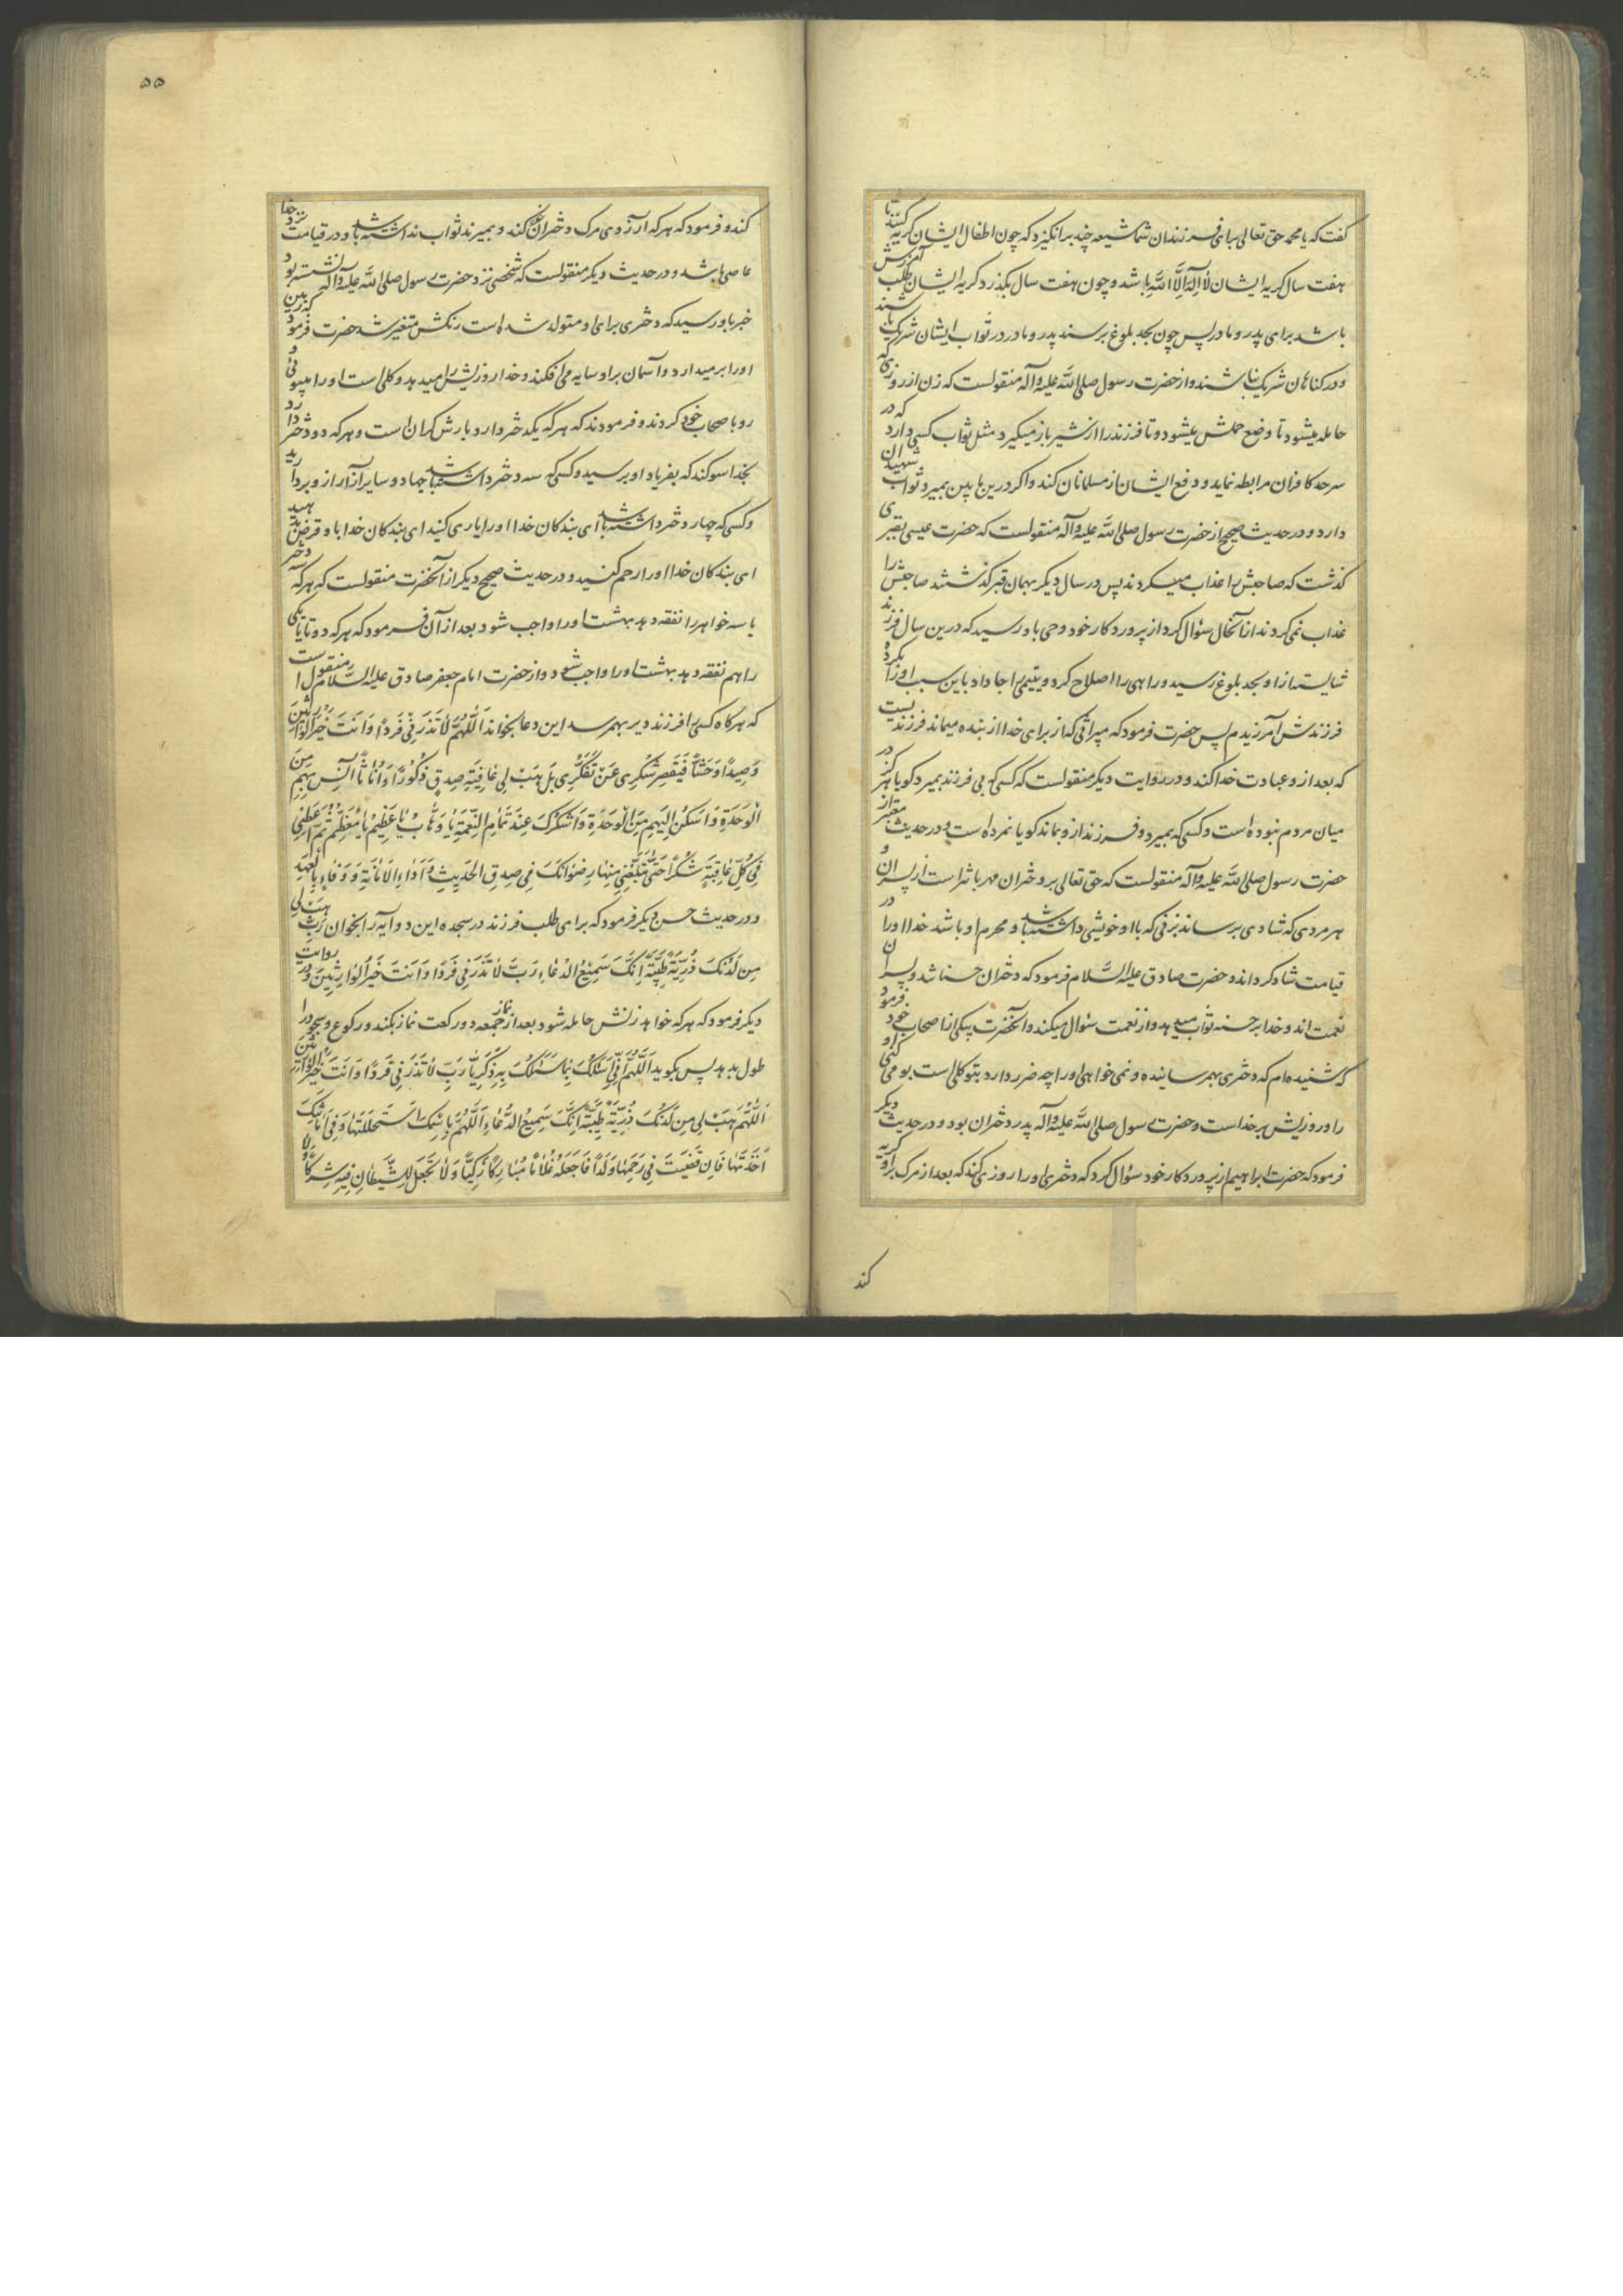 گفت که یا محمد حق تعالی برای فرزندان شما شیعه چند برانگیزد که چون اطفال ایشان گریه کنند تا
هفت سال گریه ایشان لا اله الا الله باشد و چون هفت سال بگذرد گریه ایشان طلب آمرزش
باشد برای پدر و مادر پس چون بحد بلوغ برسند پدر و مادر در ثواب ایشان شریک باشند
و در گناهان شریک نباشند و از حضرت رسول صلی الله علیه و آله منقولست که زن از روزی که
حامله میشود تا وضع حملش میشود و تا فرزند را از شیر باز میگیرد مثل ثواب کسی دارد که در
سرحد کافران مرابطه نماید و دفع ایشان از مسلمانان کند و اگر درین مابین بمیرد ثواب شهیدان
دارد و در حدیث صحیح از حضرت رسول صلی الله علیه و آله منقولست که حضرت عیسی بقبری
گذشت که صاحبش را عذاب میکردند پس در سال دیگر بهمان قبر گذشتند صاحبش را
عذاب نمی‌کردند از آنحال سؤال کرد از پروردگار خود وحی باو رسید که درین سال فرزند
شایسته از او بحد بلوغ رسید و راهی را اصلاح کرد و یتیمی را جا داد باین سبب او را بکرده
فرزندش آمرزیدم پس حضرت فرمود که میراثی که از برای خدا از بنده میماند فرزندیست
که بعد از و عبادت خدا کند و در روایت دیگر منقولست که کسی که بی فرزند بمیرد گویا هرگز در
میان مردم نبوده است و کسی که بمیرد و فرزند از و بماند گویا نمرده است و در حدیث معتبر از
حضرت رسول صلی الله علیه و آله منقولست که حق تعالی بر دختران مهربانتر است از پسران و
هر مردی که شادی برساند بزنی که با او خویشی داشته باشد و محرم او باشد خدا او را در
قیامت شاد گرداند و حضرت صادق علیه السلام فرمود که دختران حسناتند و پسران
نعمت اند و خدا بر حسنه ثواب میدهد و از نعمت سؤال میکند و آنحضرت بیکی از اصحاب خود فرمود
که شنیده‌ام که دختری بهم رسانیده و نمی خواهی او را چه ضرر دارد بتو گلی است بو می کنی او
را و روزیش بر خداست و حضرت رسول صلی الله علیه و آله پدر دختران بود و در حدیث دیگر
فرمود که حضرت ابراهیم از پروردگار خود سؤال کرد که دختری او را روزی کند که بعد از مرگ براو گریه
کند
۵۵
کند و فرمود که هر که آرزوی مرگ دختران خود کند و بمیرند ثواب نداشته باشد و در قیامت نزد خدا
عاصی باشد و در حدیث دیگر منقولست که شخصی نزد حضرت رسول صلی الله علیه و آله نشسته بود
خبر باو رسید که دختری برای او متولد شده است رنگش متغیر شد حضرت فرمود که زمین
او را بر میدارد و آسمان براو سایه می افکند و خدا روزیش را میدهد و گلی است او را میبوئی و
رو باصحاب خود کردند و فرمودند که هر که یکدختر دارد بارش گران است و هر که دو دختر دارد
بخدا سوگند که بفریاد او برسید و کسی که سه دختر داشته باشد جهاد و سایر آزار از و بردارید
و کسی که چهار دختر داشته باشد ای بندگان خدا او را یاری کنید ای بندگان خدا باو قرض بدهید
ای بندگان خدا او را رحم کنید و در حدیث صحیح دیگر از آنحضرت منقولست که هر که سه دختر
یا سه خواهر را نفقه دهد بهشت او را واجب شود بعد از آن فرمود که هر که دو تا یا یکی
را هم نفقه دهد بهشت او را واجب شود و از حضرت امام جعفر صادق علیه السلام منقول است
که هر گاه کسی را فرزند دیر بهم رسد این دعا بخواند اَللّهُمَّ لا تَذَرْنی فَرْدًا وَ اَنْتَ خَیْرُ الْوارِثینَ
وَحِیدًا وَحْشًا فَیَقْصُرَ شُکْرِی عَنْ تَفَکُّرِی بَلْ هَبْ لِی عافِیَةَ صِدْقٍ ذُکُورًا وَ اِناثًا آنَسُ بِهِمْ مِنَ
الْوَحْدَةِ وَ اَسْکُنُ اِلَیْهِمْ مِنَ الْوَحْدَةِ وَ اَشْکُرُکَ عِنْدَ تَمامِ النِّعْمَةِ یا وَهّابُ یا عَظِیمُ یا مُعَظِّمُ ثُمَّ اَعْطِنِی
فِی کُلِّ عافِیَةٍ شُکْرًا حَتّی تُبَلِّغَنِی مِنْها رِضْوانَکَ فِی صِدْقِ الْحَدِیثِ وَ اَداءِ الْاَمانَةِ وَ وَفاءٍ بِالْعَهْدِ
و در حدیث حسن دیگر فرمود که برای طلب فرزند در سجده این دو آیه را بخوان رَبِّ هَبْ لِی
مِنْ لَدُنْکَ ذُرِّیَّةً طَیِّبَةً اِنَّکَ سَمِیعُ الدُّعاءِ رَبِّ لا تَذَرْنِی فَرْدًا وَ اَنْتَ خَیْرُ الْوارِثِینَ و در روایت
دیگر فرمود که هر که خواهد زنش حامله شود بعد از نماز جمعه دو رکعت نماز بکند و رکوع و سجود را
طول بدهد پس بگوید اَللّهُمَّ اِنِّی اَسْئَلُکَ بِما سَئَلَکَ بِهِ زَکَرِیّا رَبِّ لا تَذَرْنِی فَرْدًا وَ اَنْتَ خَیْرُ الْوارِثِینَ
اَللّهُمَّ هَبْ لِی مِنْ لَدُنْکَ ذُرِّیَّةً طَیِّبَةً اِنَّکَ سَمِیعُ الدُّعاءِ اَللّهُمَّ بِاسْمِکَ اسْتَحْلَلْتُها وَ فِی اَمانَتِکَ
اَخَذْتُها فَاِنْ قَضَیْتَ فِی رَحِمِها وَلَدًا فَاجْعَلْهُ غُلامًا مُبارَکًا زَکِیًّا وَ لا تَجْعَلْ لِلشَّیْطانِ فِیهِ شِرْکًا وَ لا